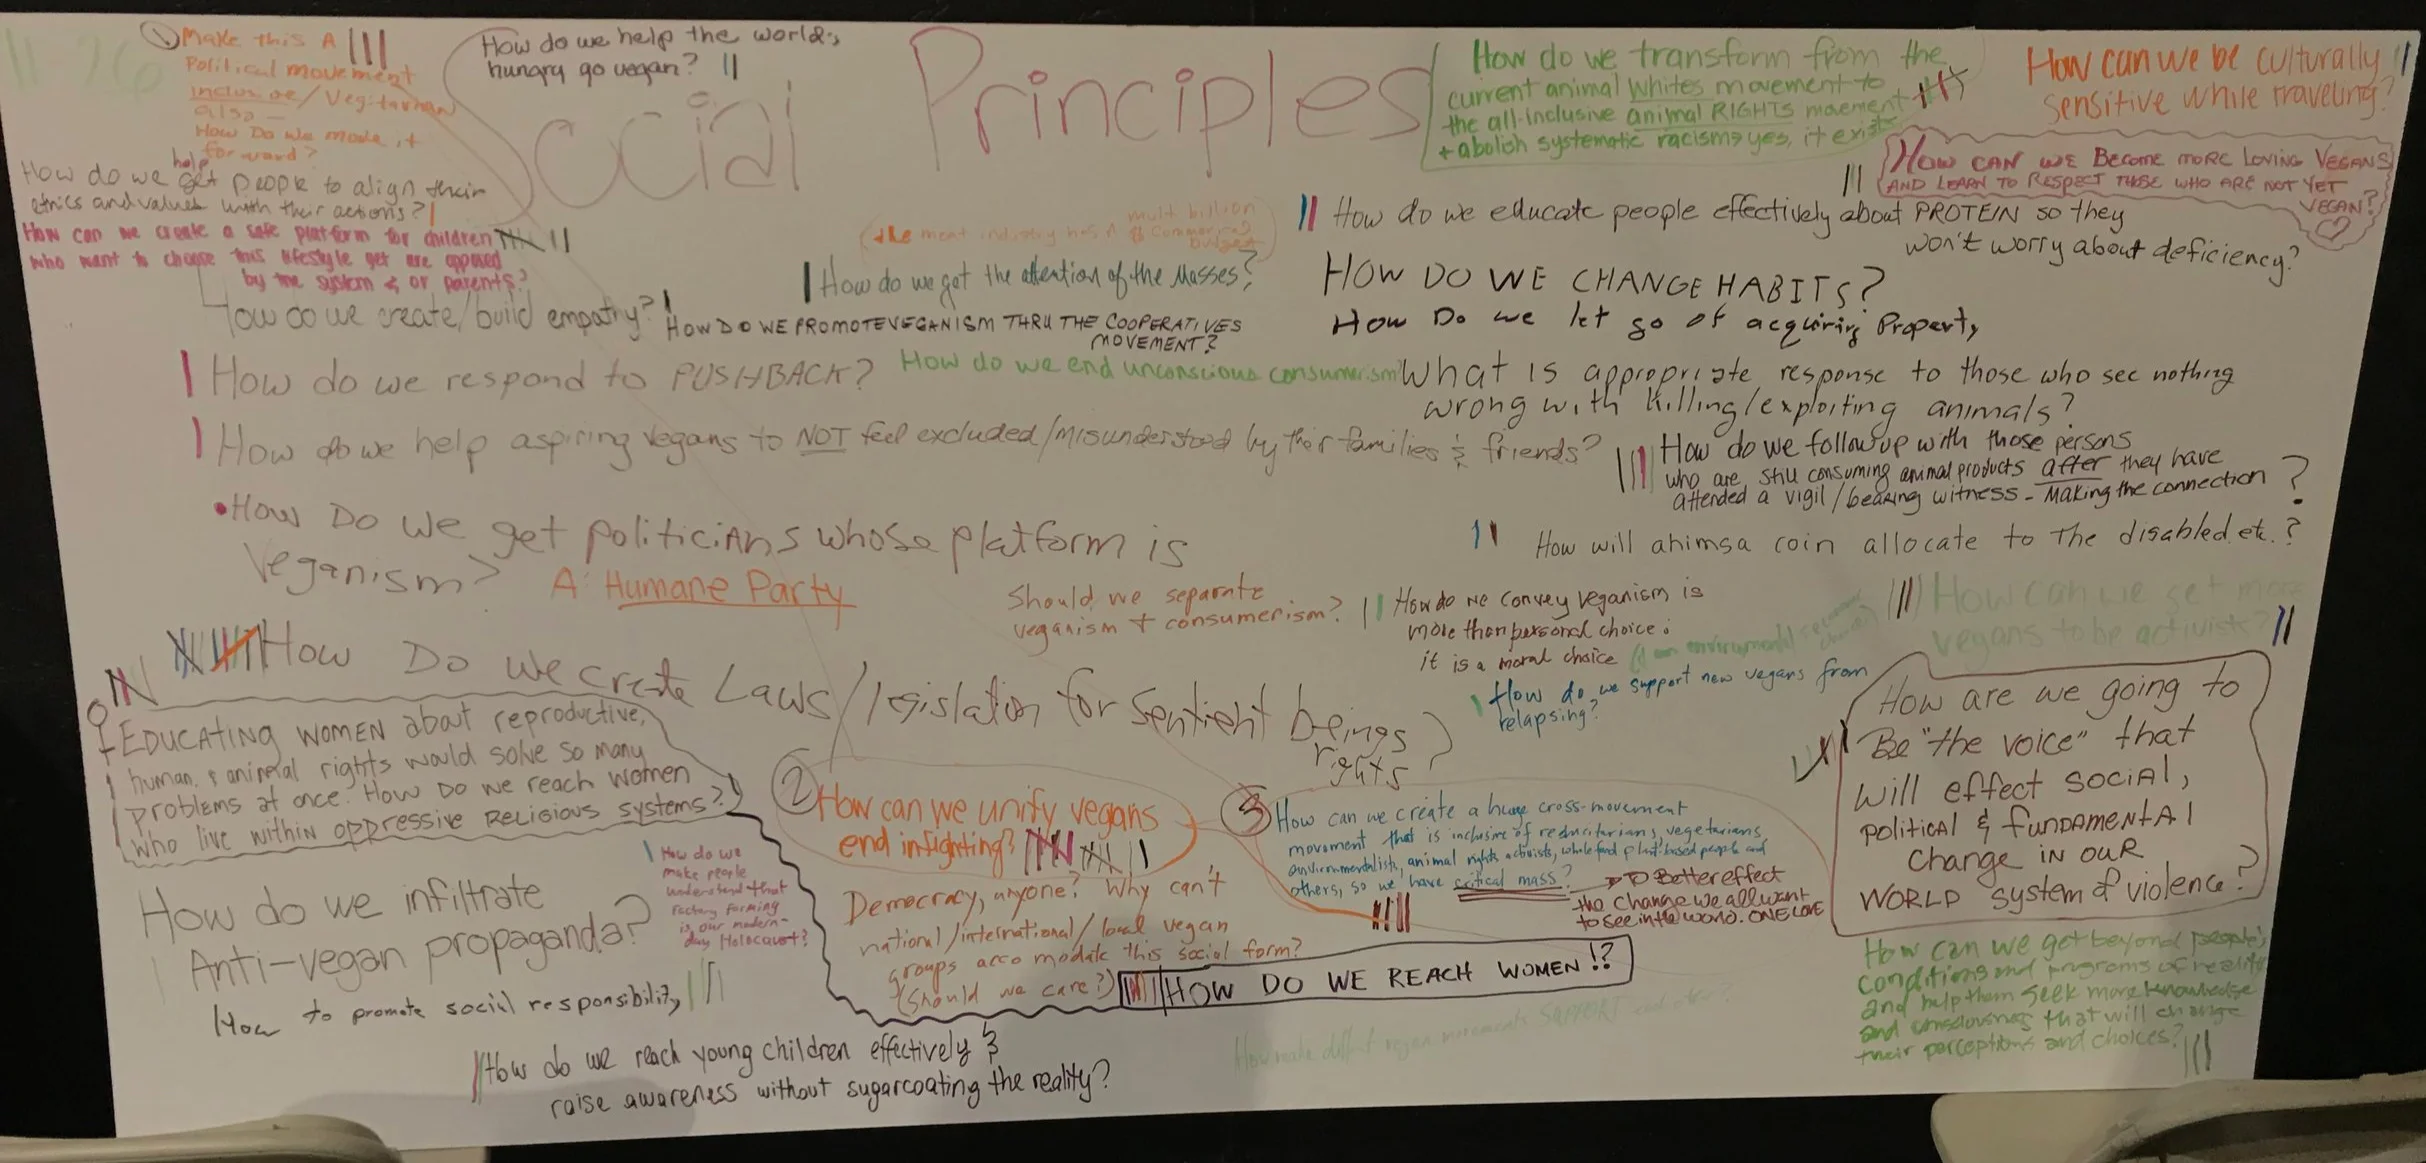 ① Make this A
Political movement
inclusive/Vegitarian
also —
How Do We move it
forward?
How do we help the world's
hungry go vegan?
Social Principles
How do we transform from the
current animal whites movement to
the all-inclusive animal RIGHTS movement
+ abolish systematic racism? yes, it exists
How can we be culturally
sensitive while traveling?
How can we become more loving vegans
and learn to respect those who are not yet
vegan?
How do we help get people to align their
ethics and values with their actions?
How can we create a safe platform for children
who want to choose this lifestyle yet are opposed
by the system & or parents?
How do we create/build empathy?
(the meat industry has a multi billion
$ commercial
budget)
How do we get the attention of the masses?
HOW DO WE PROMOTE VEGANISM THRU THE COOPERATIVES
MOVEMENT?
How do we educate people effectively about PROTEIN so they
won't worry about deficiency?
HOW DO WE CHANGE HABITS?
How Do we let go of acquiring Property
How do we respond to PUSHBACK?
How do we end unconscious consumerism
What is appropriate response to those who see nothing
wrong with killing/exploiting animals?
How do we help aspiring vegans to NOT feel excluded/misunderstood by their families & friends?
How do we follow up with those persons
who are still consuming animal products after they have
attended a vigil/bearing witness - making the connection?
• How Do we get politicians whose platform is
veganism?
A: Humane Party
How will ahimsa coin allocate to the disabled etc.?
Should we separate
veganism + consumerism?
How do we convey veganism is
more than personal choice:
it is a moral choice
How can we get more
vegans to be activists?
How Do we create Laws/legislation for sentient beings
rights
How do we support new vegans from
relapsing?
EDUCATING WOMEN about reproductive,
human & animal rights would solve so many
problems at once. How Do we reach women
who live within oppressive Religious systems?
② How can we unify vegans
end infighting?
③ How can we create a huge cross-movement
movement that is inclusive of reducitarians, vegetarians,
environmentalists, animal rights activists, whole food plant-based people and
others, so we have critical mass?
TO Better effect
the change we all want
to see in the world. ONE LOVE
How are we going to
Be "the voice" that
will effect social,
political & fundamental
change in our
WORLD system of violence?
How do we infiltrate
Anti-vegan propaganda?
How do we
make people
understand that
factory farming
is our modern-
day Holocaust?
Democracy, anyone? Why can't
national/international/local vegan
groups acco modate this social form?
(Should we care?)
HOW DO WE REACH WOMEN!?
How to promote social responsibility
How can we get beyond people's
conditions and programs of reality
and help them seek more knowledge
and consciousness that will change
their perceptions and choices?
How do we reach young children effectively &
raise awareness without sugarcoating the reality?